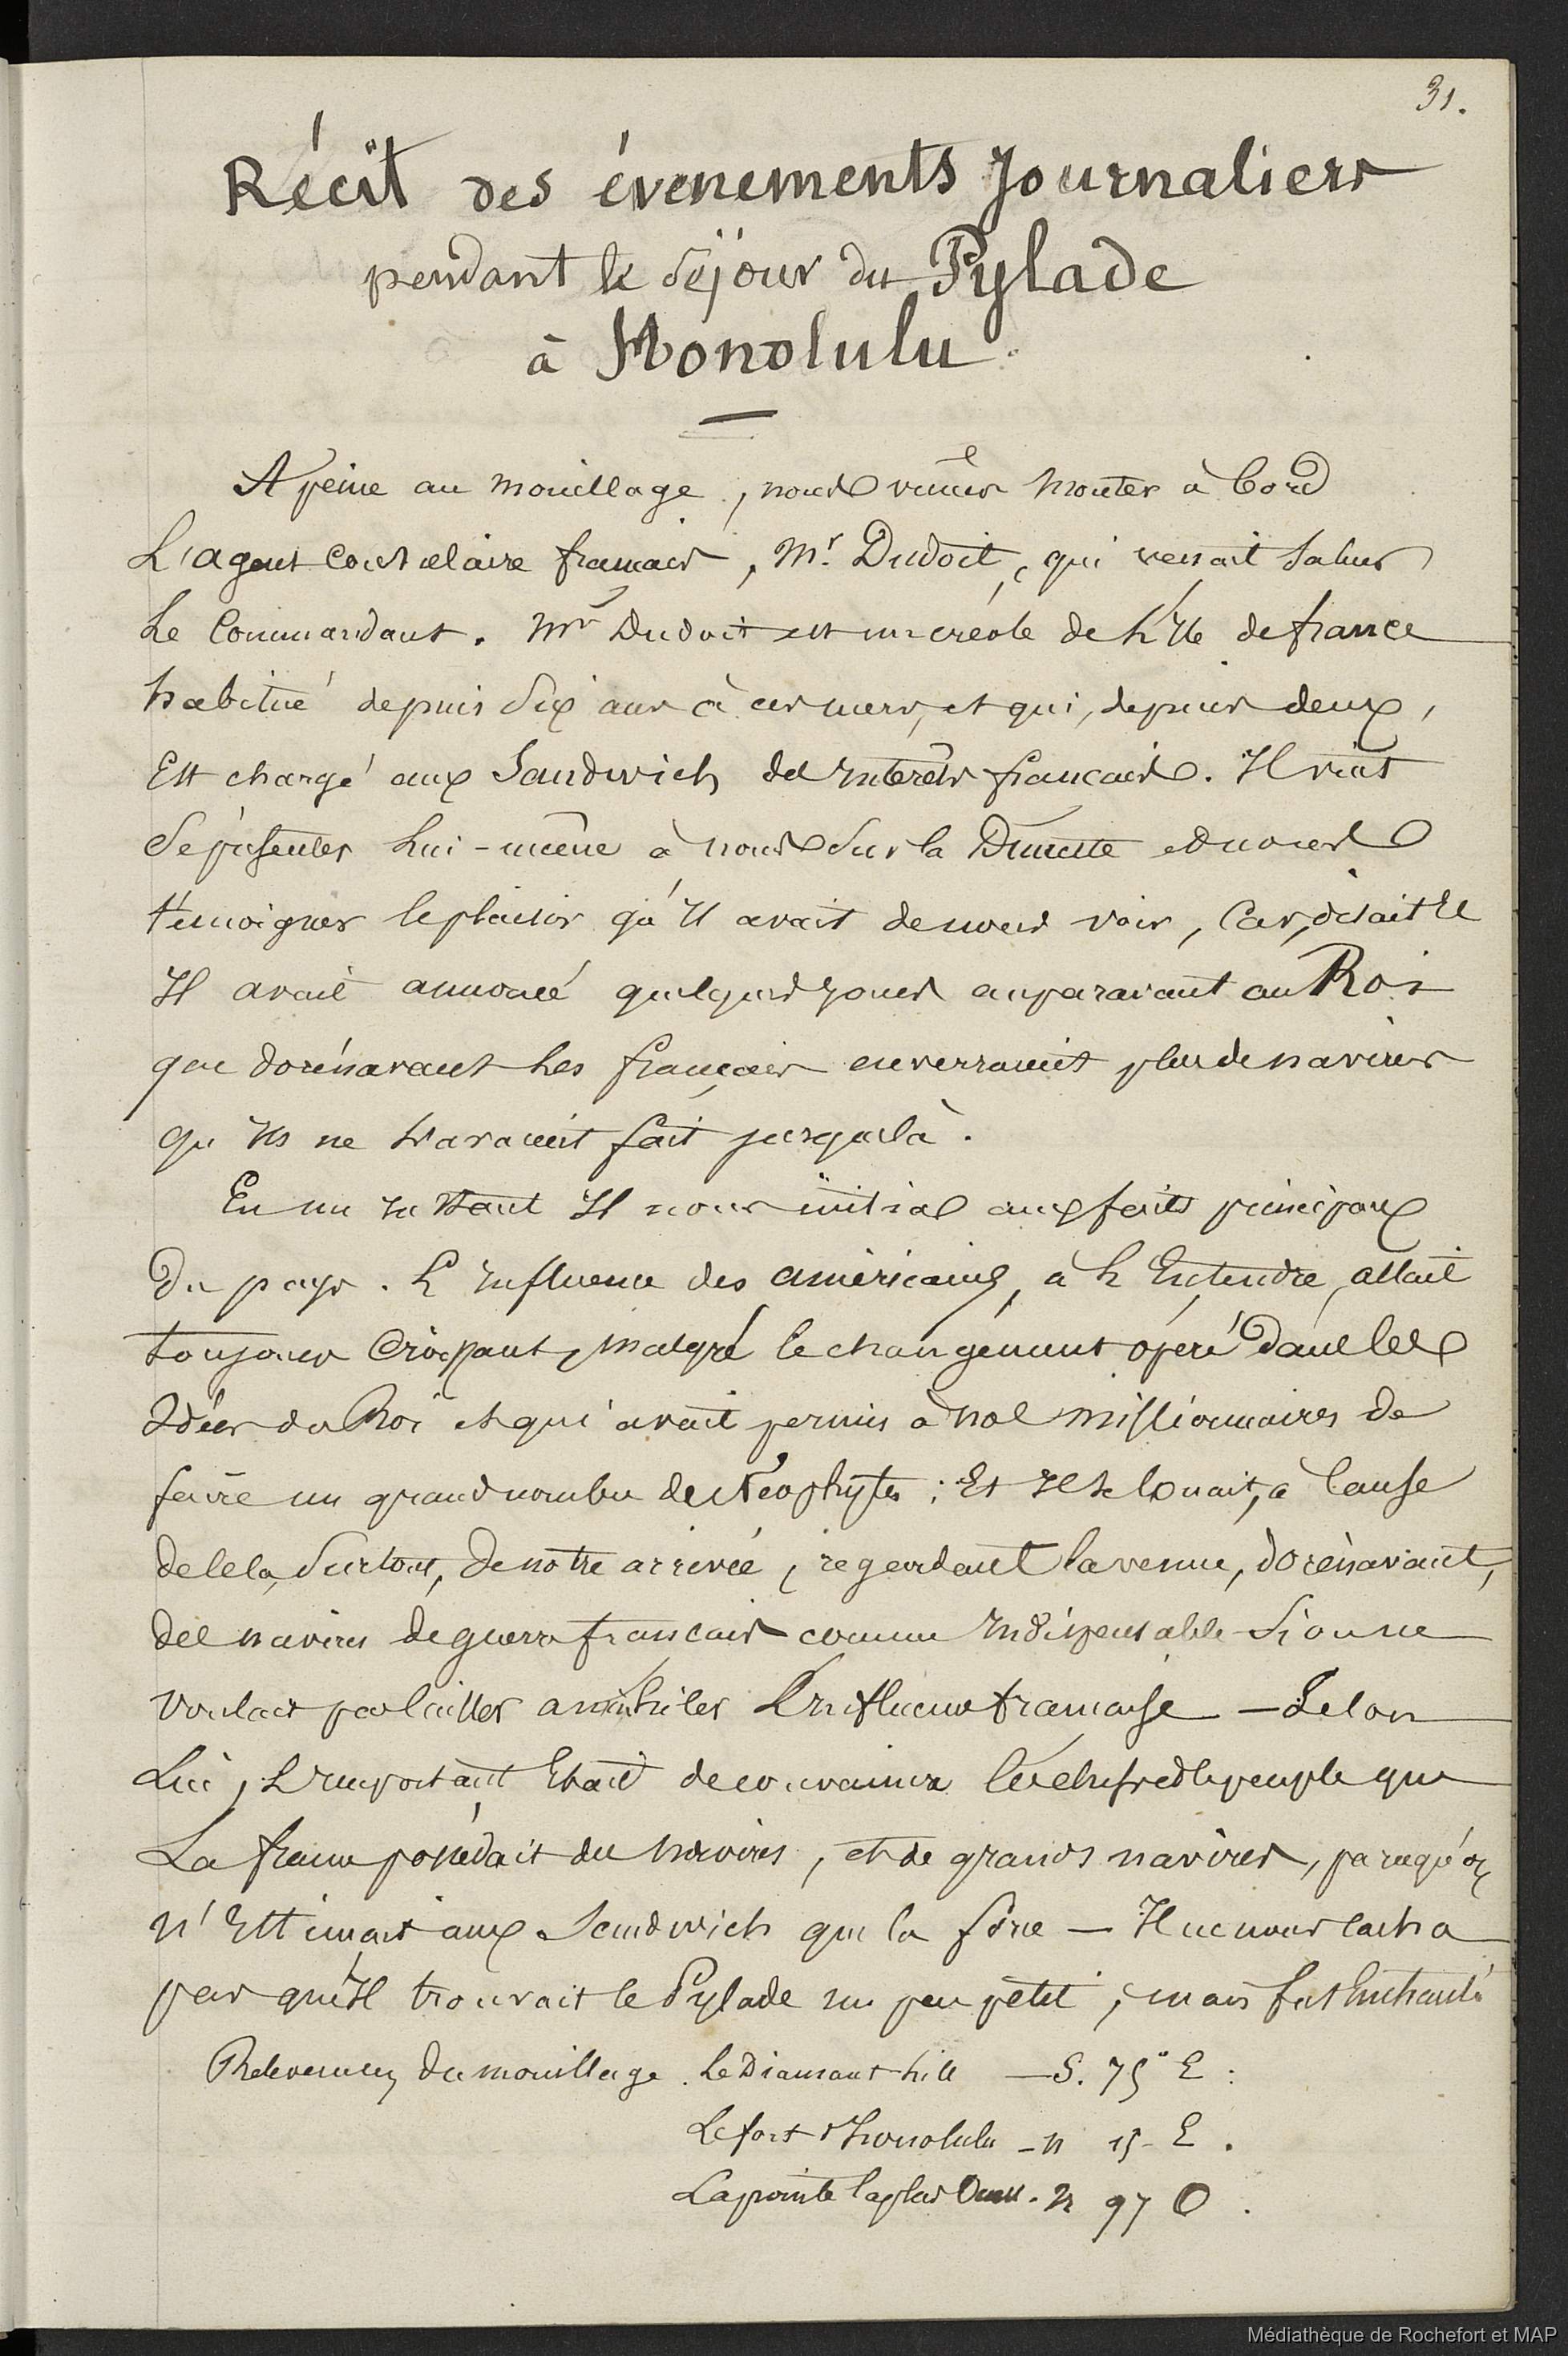 31.
Récit des évenements Journaliers
pendant le séjour du Pylade
à Honolulu.
A peine au mouillage, nous vîmes monter à bord
L'agent consulaire français, Mr. Dudoit, qui venait saluer
Le Commandant. Mr Dudoit est un créole de L'Ile de france
habitué depuis dix ans à ces mers, et qui, depuis deux,
Est chargé aux Sandwich des Interêts français. Il vint
se présenter Lui-même à nous sur la Dunette et nous
témoigner le plaisir qu'Il avait de nous voir, Car, disait Il
Il avait annoncé quelques Jours auparavant au Roi
que dorénavant Les français enverraient plus de navires
qu'Ils ne L'avaient fait jusques là.
En un Instant Il nous initia aux faits principaux
Du pays. L'Influence des américains, à L'Entendre, allait
toujours Croissant, malgré le changement opéré dans les
Idées du Roi et qui avait permis à nos missionnaires de
faire un grand nombre de Néophytes; Et Il se louait, à Cause
de cela, surtout, de notre arrivée, regardant la venue, dorénavant,
des navires de guerre français comme Indispensable si on ne
voulait pas laisser annihiler L'Influence française — Selon
Lui, L'Important Etait de convaincre les chefs et le peuple que
La france possédait des navires, et de grands navires, parce qu'on
n'Estimait aux Sandwich que la force — Il ne nous cacha
pas qu'Il trouvait le Pylade un peu petit; mais fut Enchanté
Relevement du mouillage. Le Diamant-hill — S. 75° E:
Le fort d'honolulu - n 15 - E.
La pointe la plus Ouest. N 97 O.
Médiathèque de Rochefort et MAP